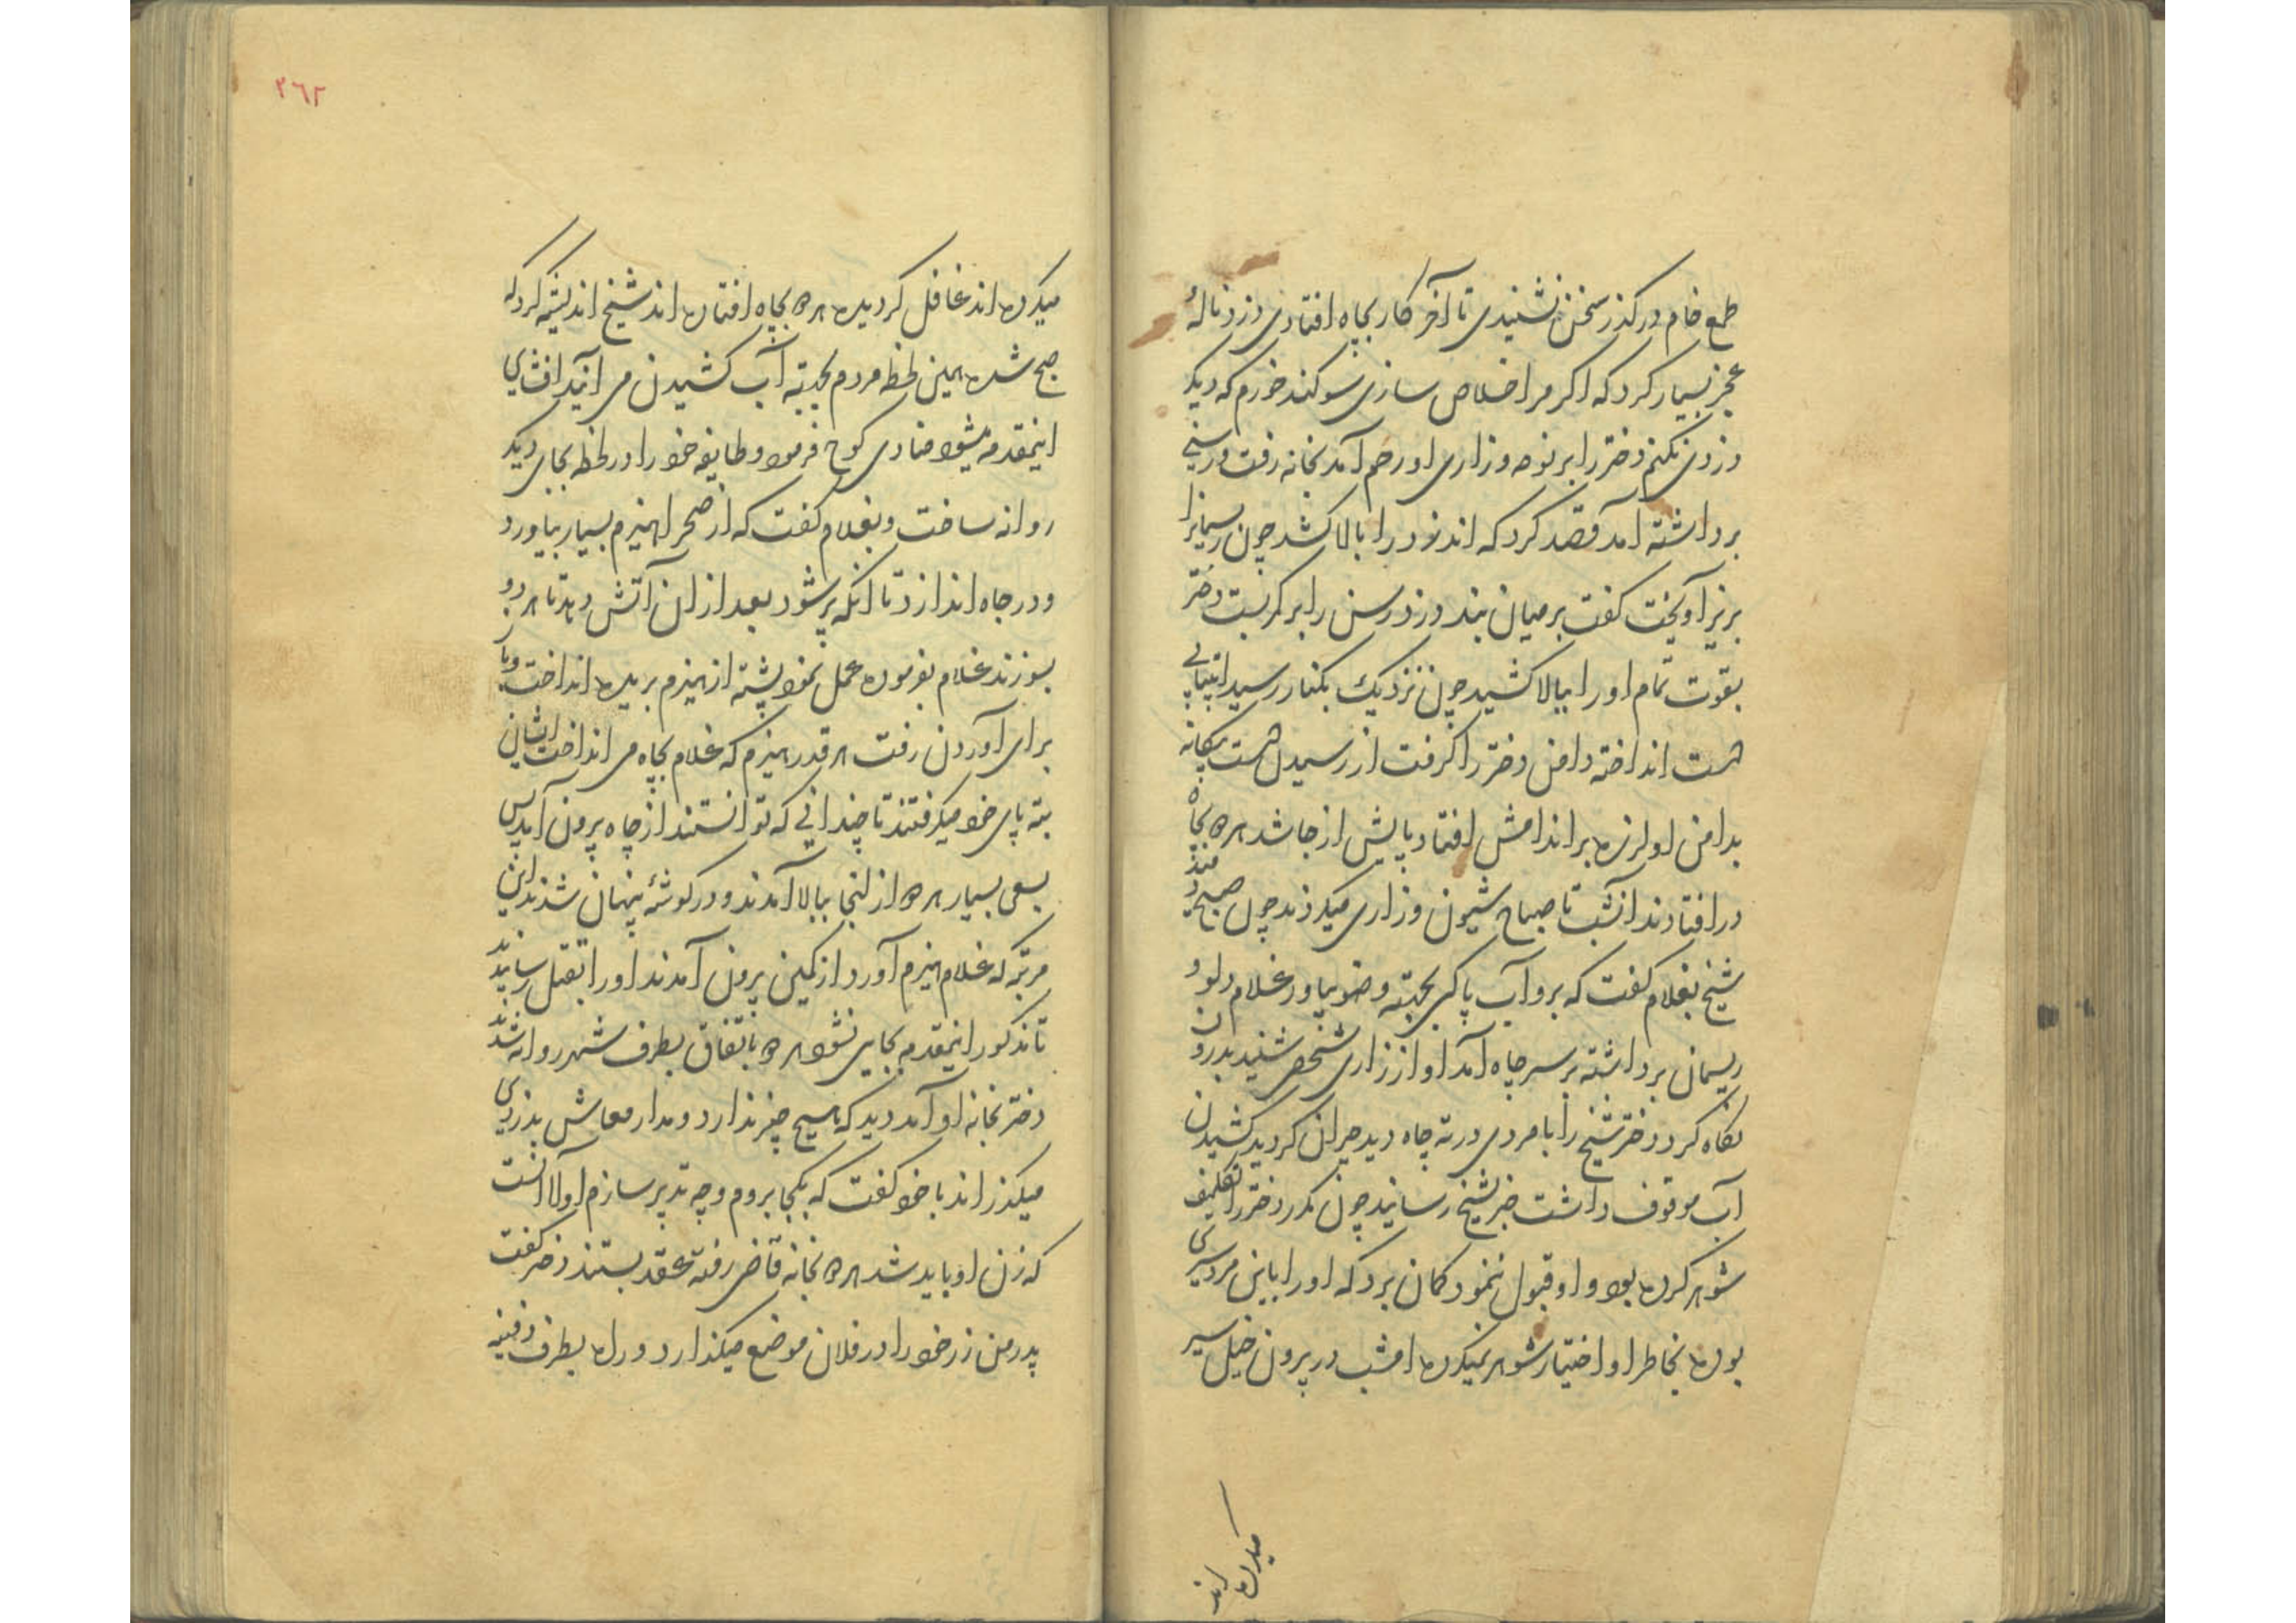 طمع خام درکذر سخن نشنیدی تا آخر کار بچاه افتادی دزد نالهٔ
عجز بسیار کرد که اکر مرا خلاص سازی سوکند خورم که دیکر
دزدی نکنم دختر را بر نوحه وزاری او رحم آمد بخانه رفت ورسنی
برداشته آمد قصد کرد که اندزد را بالا کشد چون ریسمانرا
بزیر آویخت کفت بر میان بند دزد رسن را بر کمر بست دختر
بقوت تمام او را ببالا کشید چون نزدیک بکنار رسید
دست انداخته دامن دختر را کرفت از رسیدن دست بیکانه
بدامن او لرزه بر اندامش افتاد پایش از جا شد هردو بچاه
در افتادند آنشب تا صباح شیون وزاری میکردند چون صبح دمید
شیخ بغلام کفت که برو آب پاکی بجهته وضو بیاور غلام دلو و
ریسمان برداشته بر سر چاه آمد آواز زاری شخصی شنید بدرون
نکاه کرد دختر شیخ را با مردی در ته چاه دید حیران کردید کشیدن
آب موقوف داشت خبر بشیخ رسانید چون مکرر دختر را تکلیف
شوهر کرده بود و او قبول ننمود کمان برد که او را باین مرد سری
بوده بخاطر او اختیار شوهر نمیکرده امشب در بیرون خیل سیر
میکرده اند
٢٦٢
میکرده اند غافل کردیده هردو بچاه افتاده اند شیخ اندیشه کرد که
صبح شده همین لحظه مردم بجهته آب کشیدن می آیند افشای
اینمقدمه میشود منادی کوچ فرمود وطایفه خود را در لحظه بجای دیکر
روانه ساخت وبغلام کفت که از صحرا هیزم بسیار بیاورد
ودر چاه اندازد تا انکه پر شود بعد از ان آتش دهد تا هر دو
بسوزند غلام بفرموده عمل نمود پشته از هیزم بریده انداخت وباز
برای آوردن رفت هر قدر هیزم که غلام بچاه می انداخت ایشان
بته پای خود میکرفتند تا چندانی که توانستند از چاه بیرون آیند پس
بسعی بسیار هردو از انجا ببالا آمدند ودر کوشهٔ پنهان شدند این
مرتبه که غلام هیزم آورد از کمین بیرون آمدند او را بقتل رسانیدند
تا مذکور اینمقدمه بجایی نشود هردو باتفاق بطرف شهر روانه شدند
دختر بخانه او آمد دید که هیچ چیز ندارد ومدار معاش بدزدی
میکذراند با خود کفت که بکجا بروم وچه تدبیر سازم اولا انست
که زن او باید شد هردو بخانه قاضی رفته عقد بستند دختر کفت
پدر من زر خود را در فلان موضع میکذارد وراه بطرف دفینه